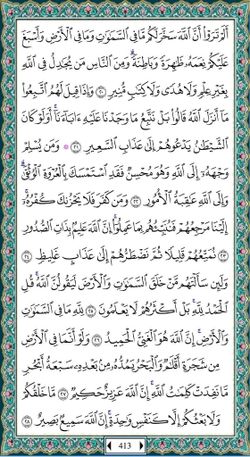 أَلَمْ تَرَوْا۟ أَنَّ ٱللَّهَ سَخَّرَ لَكُم مَّا فِى ٱلسَّمَٰوَٰتِ وَمَا فِى ٱلْأَرْضِ وَأَسْبَغَ
عَلَيْكُمْ نِعَمَهُۥ ظَٰهِرَةً وَبَاطِنَةً ۗ وَمِنَ ٱلنَّاسِ مَن يُجَٰدِلُ فِى ٱللَّهِ
بِغَيْرِ عِلْمٍ وَلَا هُدًى وَلَا كِتَٰبٍ مُّنِيرٍ ٢٠ وَإِذَا قِيلَ لَهُمُ ٱتَّبِعُوا۟
مَآ أَنزَلَ ٱللَّهُ قَالُوا۟ بَلْ نَتَّبِعُ مَا وَجَدْنَا عَلَيْهِ ءَابَآءَنَآ ۚ أَوَلَوْ كَانَ
ٱلشَّيْطَٰنُ يَدْعُوهُمْ إِلَىٰ عَذَابِ ٱلسَّعِيرِ ٢١ ۞ وَمَن يُسْلِمْ
وَجْهَهُۥٓ إِلَى ٱللَّهِ وَهُوَ مُحْسِنٌ فَقَدِ ٱسْتَمْسَكَ بِٱلْعُرْوَةِ ٱلْوُثْقَىٰ ۗ
وَإِلَى ٱللَّهِ عَٰقِبَةُ ٱلْأُمُورِ ٢٢ وَمَن كَفَرَ فَلَا يَحْزُنكَ كُفْرُهُۥٓ ۚ
إِلَيْنَا مَرْجِعُهُمْ فَنُنَبِّئُهُم بِمَا عَمِلُوٓا۟ ۚ إِنَّ ٱللَّهَ عَلِيمٌۢ بِذَاتِ ٱلصُّدُورِ
٢٣ نُمَتِّعُهُمْ قَلِيلًا ثُمَّ نَضْطَرُّهُمْ إِلَىٰ عَذَابٍ غَلِيظٍ ٢٤
وَلَئِن سَأَلْتَهُم مَّنْ خَلَقَ ٱلسَّمَٰوَٰتِ وَٱلْأَرْضَ لَيَقُولُنَّ ٱللَّهُ ۚ قُلِ
ٱلْحَمْدُ لِلَّهِ ۚ بَلْ أَكْثَرُهُمْ لَا يَعْلَمُونَ ٢٥ لِلَّهِ مَا فِى ٱلسَّمَٰوَٰتِ
وَٱلْأَرْضِ ۚ إِنَّ ٱللَّهَ هُوَ ٱلْغَنِىُّ ٱلْحَمِيدُ ٢٦ وَلَوْ أَنَّمَا فِى ٱلْأَرْضِ
مِن شَجَرَةٍ أَقْلَٰمٌ وَٱلْبَحْرُ يَمُدُّهُۥ مِنۢ بَعْدِهِۦ سَبْعَةُ أَبْحُرٍ
مَّا نَفِدَتْ كَلِمَٰتُ ٱللَّهِ ۗ إِنَّ ٱللَّهَ عَزِيزٌ حَكِيمٌ ٢٧ مَّا خَلْقُكُمْ
وَلَا بَعْثُكُمْ إِلَّا كَنَفْسٍ وَٰحِدَةٍ ۗ إِنَّ ٱللَّهَ سَمِيعٌۢ بَصِيرٌ ٢٨
413